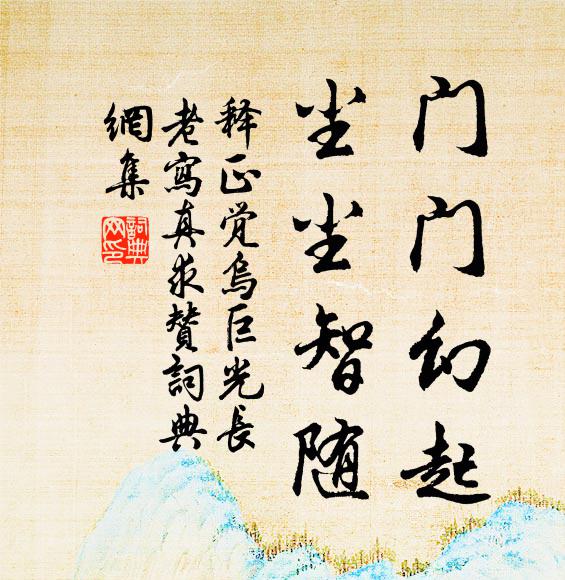 门门幻起
尘尘智随
释正觉乌巨光长
老寫真求賛詞典
網集
詞典
网印